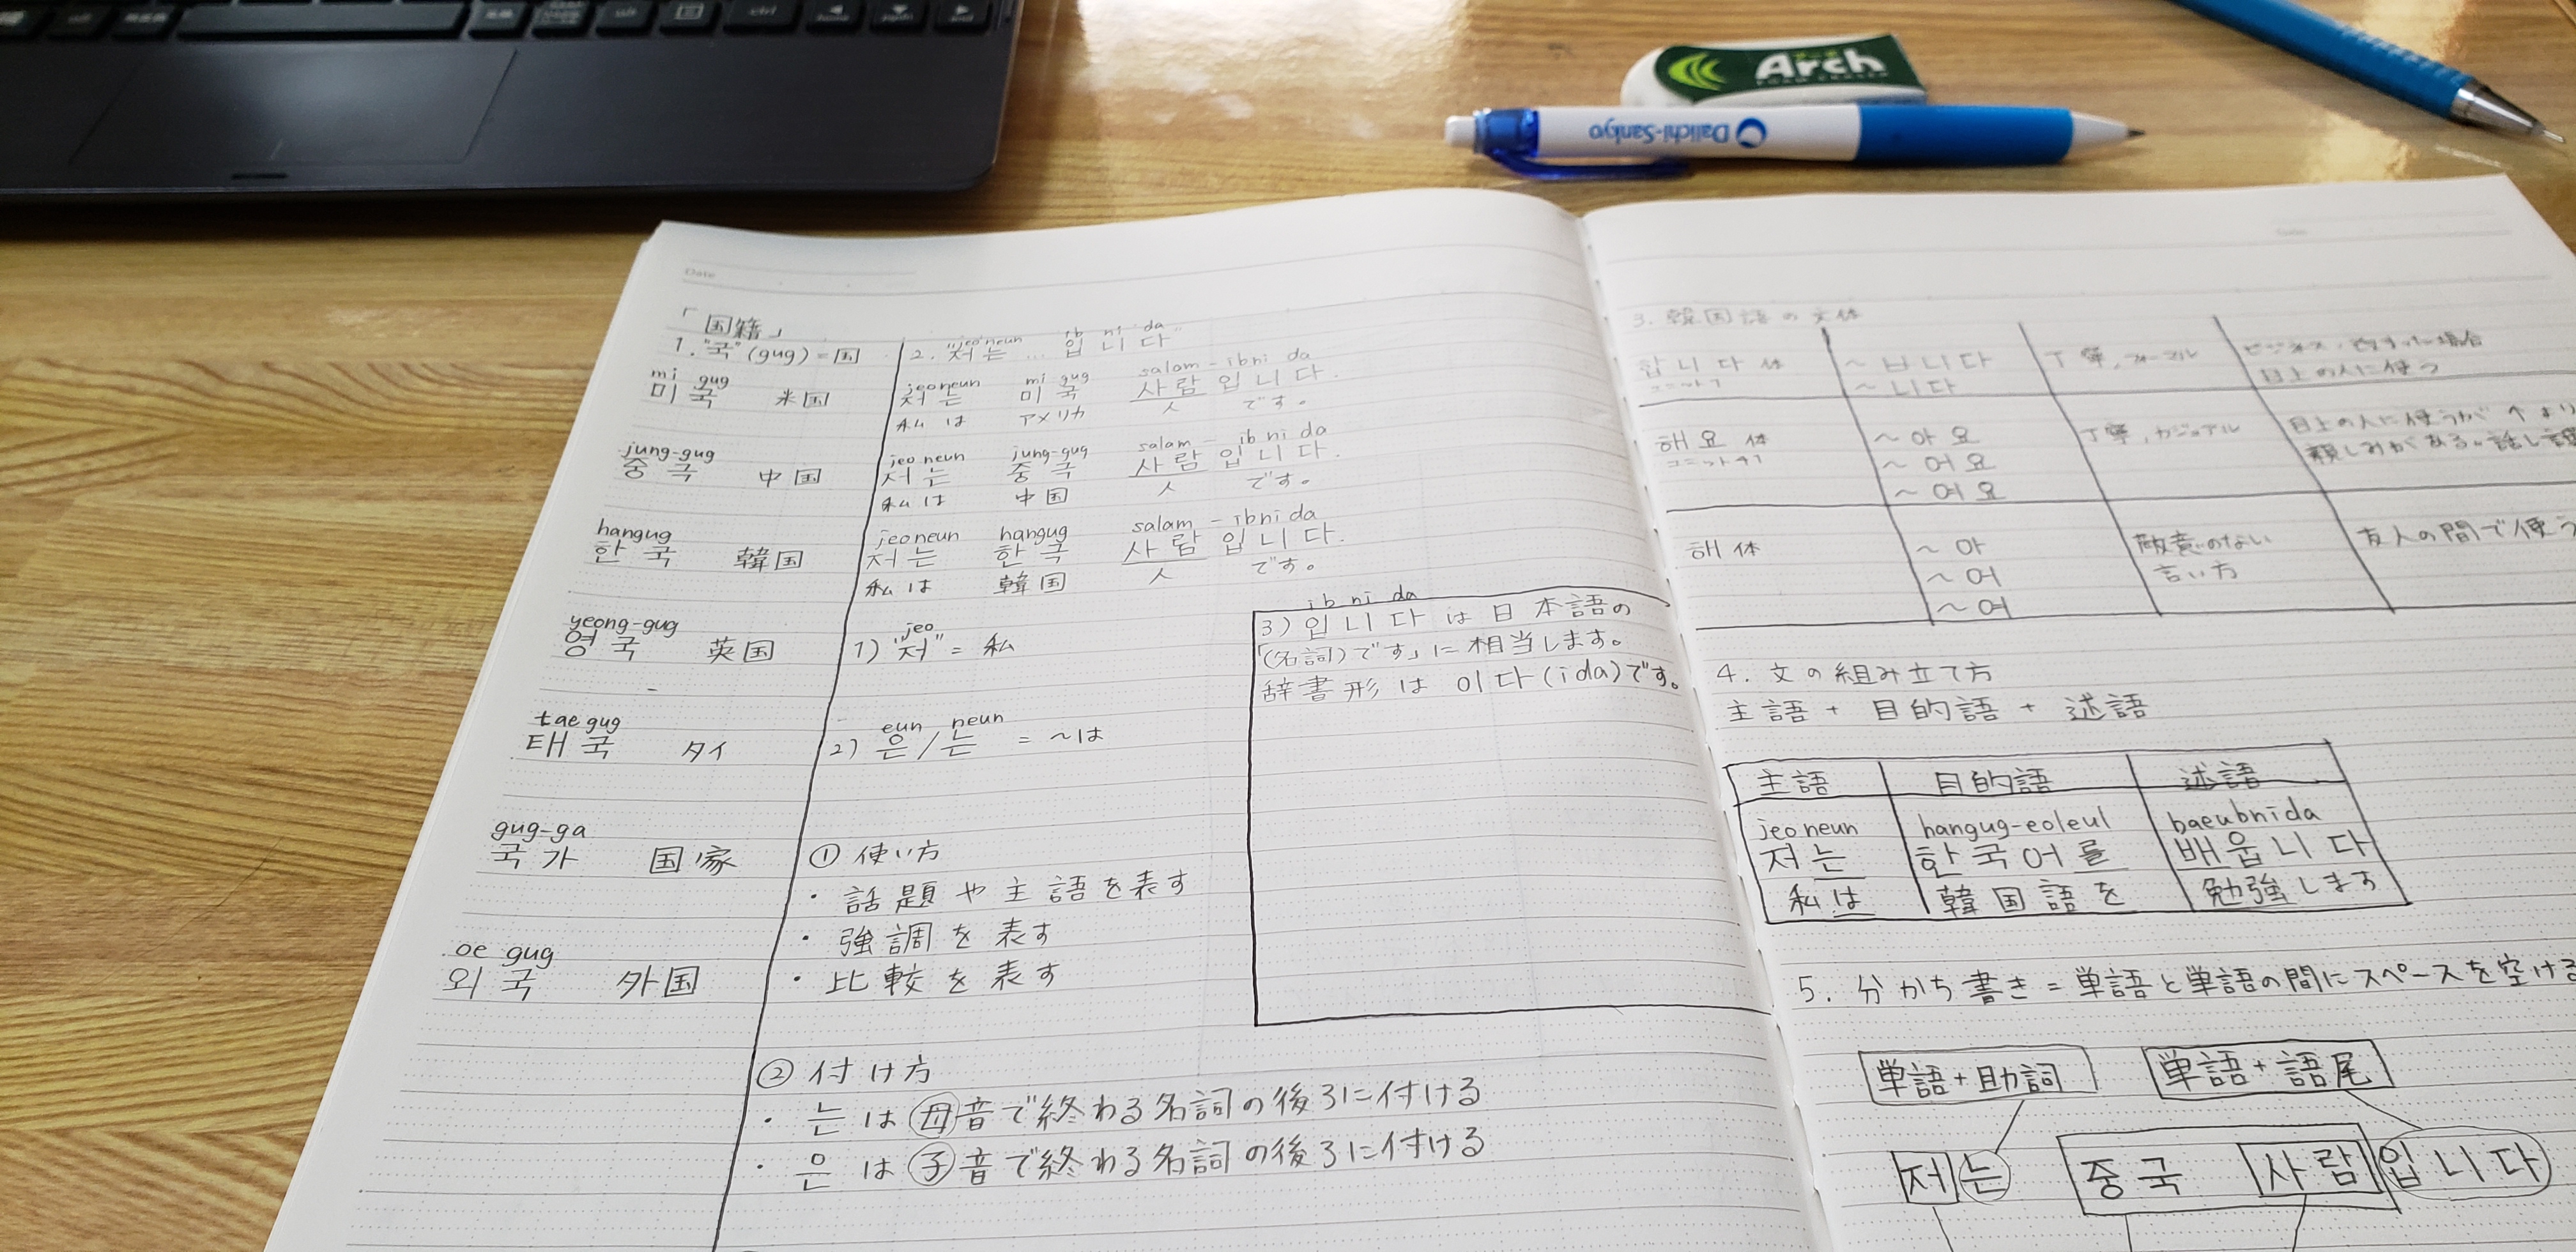 Arch
Daiichi-Sankyo
Date
「国籍」
1. "국" (gug) = 国
mi gug
미국 米国
jung-gug
중국 中国
hangug
한국 韓国
yeong-gug
영국 英国
tae gug
태국 タイ
gug-ga
국가 国家
oe gug
외국 外国
jeo neun ib ni da
2. "저는 ... 입니다"
jeoneun mi gug salam-ibni da
저는 미국 사람입니다.
私は アメリカ 人 です。
jeoneun jung-gug salam-ibnida
저는 중국 사람입니다.
私は 中国 人 です。
jeoneun hangug salam-ibnida
저는 한국 사람입니다.
私は 韓国 人 です。
jeo
1) "저" = 私
eun neun
2) 은/는 = ~は
① 使い方
・話題や主語を表す
・強調を表す
・比較を表す
② 付け方
・는は母音で終わる名詞の後ろに付ける
・은は子音で終わる名詞の後ろに付ける
ib ni da
3) 입니다は日本語の
「(名詞)です」に相当します。
辞書形は 이다(ida)です。
3. 韓国語の文体
합니다体 ~ㅂ니다 丁寧, フォーマル 場合
~니다 目上の人に使う
해요体 ~아요 丁寧, カジュアル 目上の人に使うが ↑より
~어요 親しみがある。話し言葉
~여요
해体 ~아 敵意のない 友人の間で使う
~어 言い方
~여
4. 文の組み立て方
主語 + 目的語 + 述語
主語 目的語 述語
jeoneun hangug-eoleul baeubnida
저는 한국어를 배웁니다
私は 韓国語を 勉強します
5. 分かち書き = 単語と単語の間にスペースを空ける
単語+助詞 単語+語尾
저는 중국 사람입니다